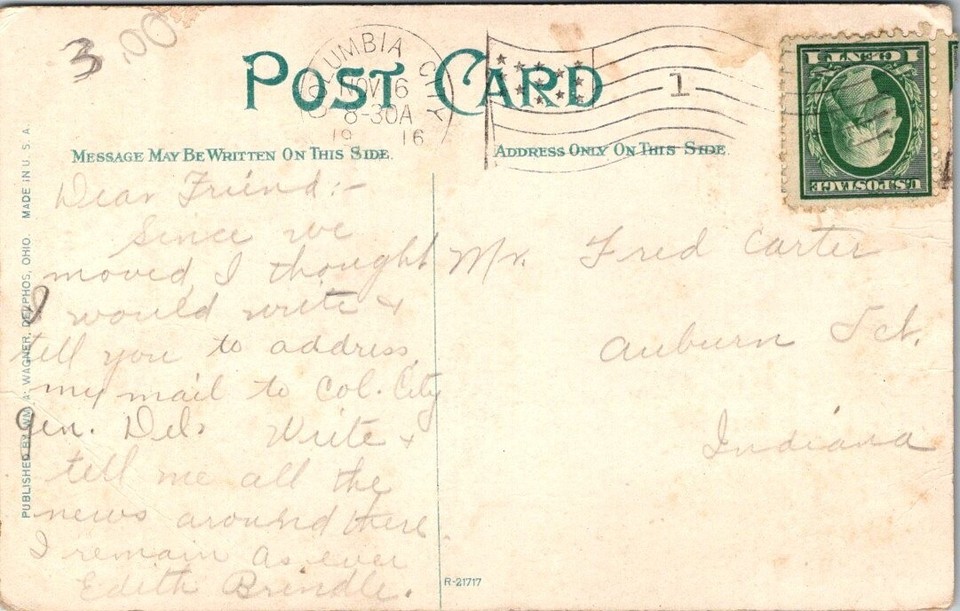 3.00
POST CARD
COLUMBIA CITY
NOV 16
8-30A
19 16
1
1 CENT 1
U.S. POSTAGE
MESSAGE MAY BE WRITTEN ON THIS SIDE.
ADDRESS ONLY ON THIS SIDE.
Dear Friend:-
Since we
moved I thought
I would write &
tell you to address
my mail to Col. City
Gen. Del. Write &
tell me all the
news around there.
I remain as ever
Edith Brindle.
Mr. Fred Carter
Auburn Jct.
Indiana
PUBLISHED BY WM. A. WAGNER, DELPHOS, OHIO. MADE IN U. S. A.
R-21717